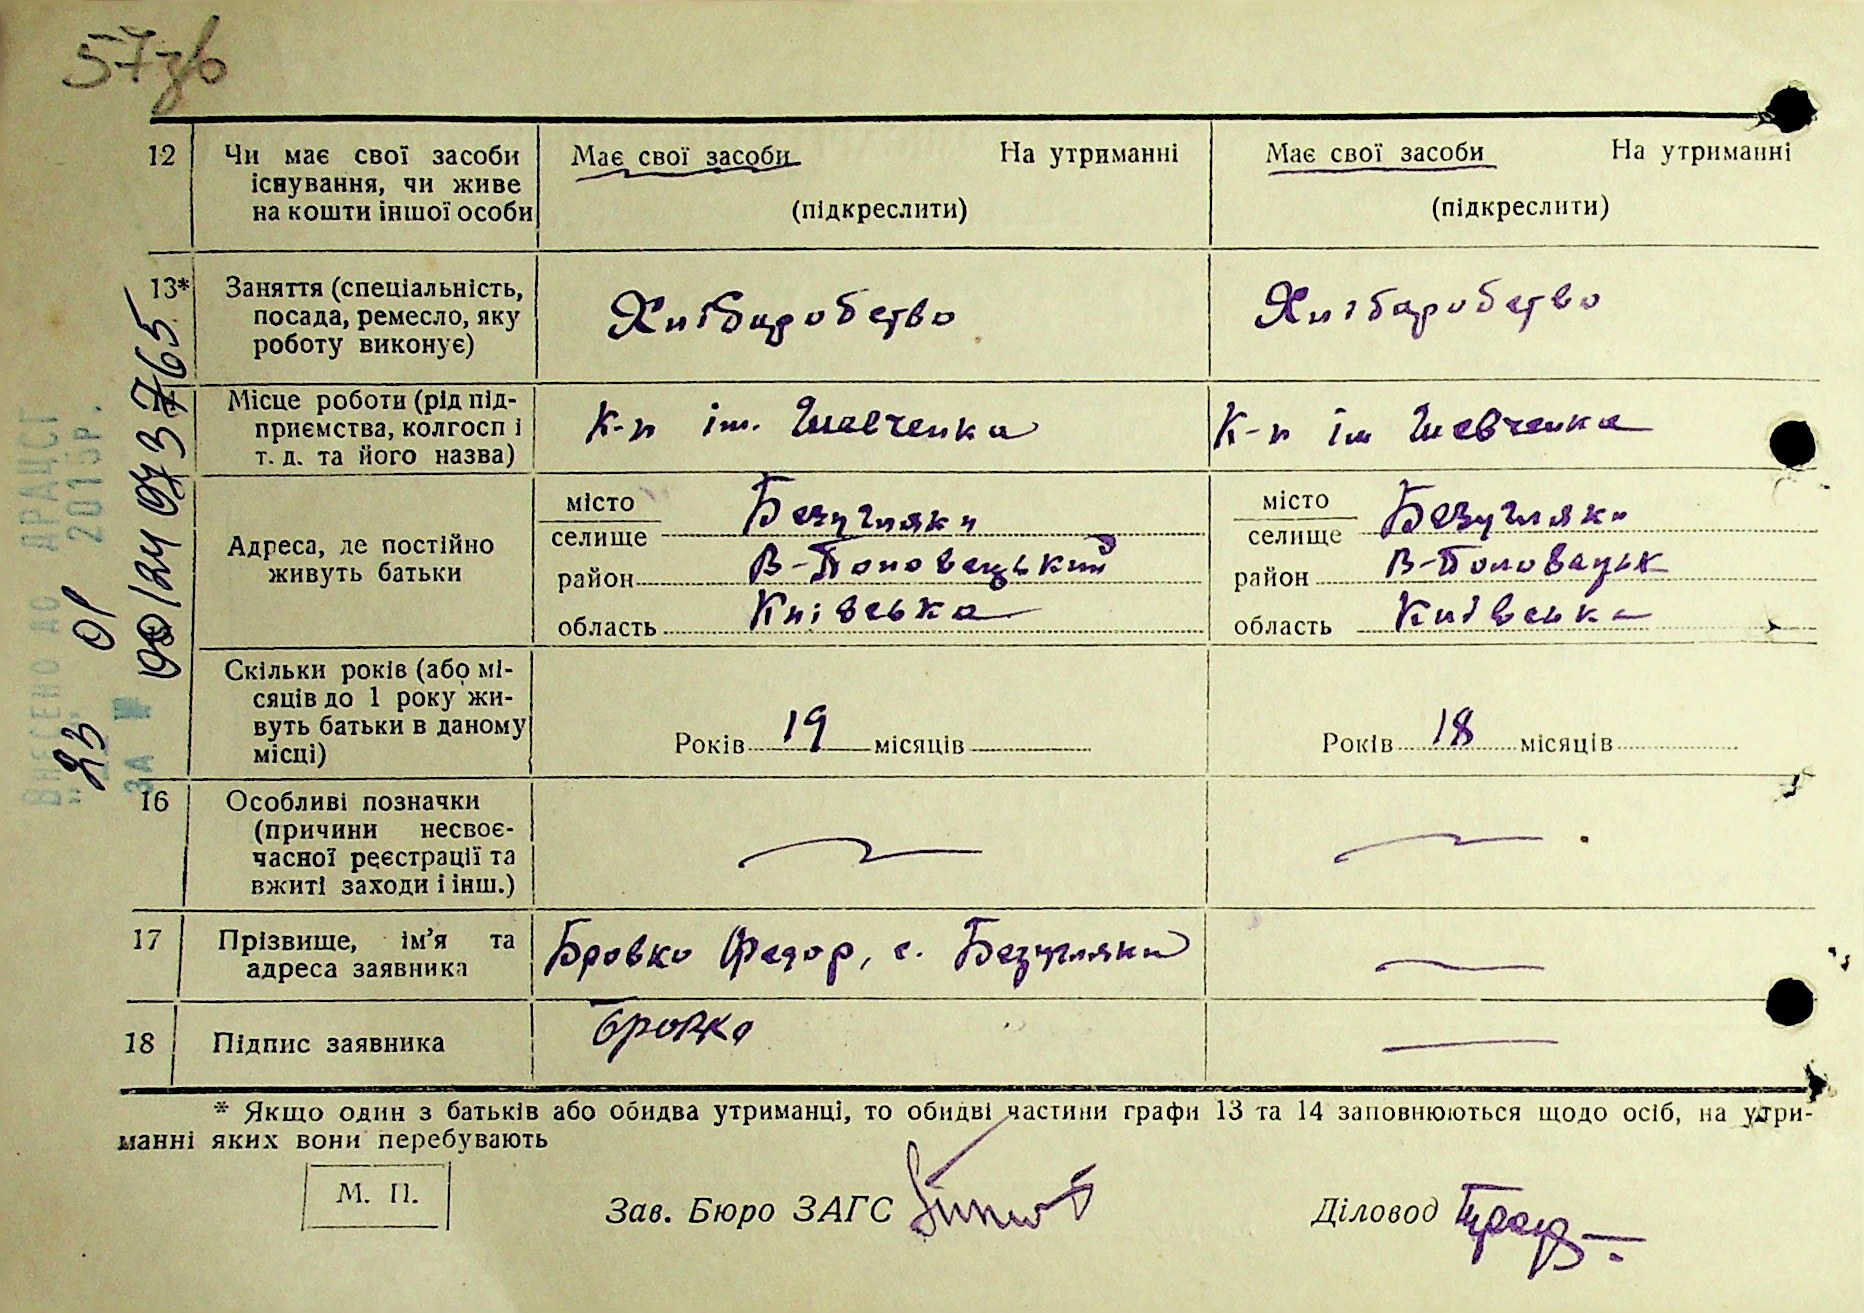 57зв
12 Чи має свої засоби Має свої засоби На утриманні Має свої засоби На утриманні
існування, чи живе
на кошти іншої особи (підкреслити) (підкреслити)
13* Заняття (спеціальність,
посада, ремесло, яку Хлібаробство Хлібаробство
роботу виконує)
Місце роботи (рід під-
приємства, колгосп і К-п ім. Шевченка К-п ім Шевченка
т. д. та його назва)
місто Безугляки місто Безугляки
селище селище
Адреса, де постійно
живуть батьки район В-Половецький район В-Половецьк
область Київська область Київська
Скільки років (або мі-
сяців до 1 року жи-
вуть батьки в даному
місці) Років 19 місяців Років 18 місяців
16 Особливі позначки
(причини несвоє-
часної реєстрації та
вжиті заходи і інш.)
17 Прізвище, ім'я та Бровко Федор, с. Безугляки
адреса заявника
18 Підпис заявника Бровко
* Якщо один з батьків або обидва утриманці, то обидві частини графи 13 та 14 заповнюються щодо осіб, на утри-
манні яких вони перебувають
М. П. Зав. Бюро ЗАГС Діловод
ВНЕСЕНО ДО ДРАЦСГ
23 01 2015р.
ЗА №